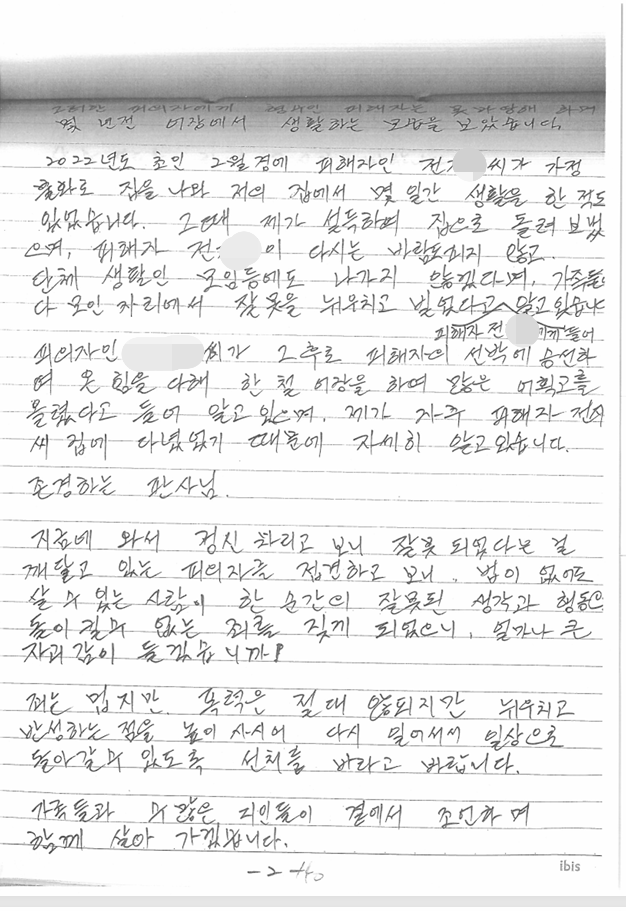 그러한 피의자에게 피해자는
몇 년전 어장에서 생활하는 모습을 보았습니다.
2022년도 초인 2월경에 피해자인 전 씨가 가정
불화로 집을 나와 저의 집에서 몇 일간 생활을 한 적도
있었습니다. 그때 제가 설득하며 집으로 돌려 보냈
으며, 피해자 전 이 다시는 바람도피지 않고.
단체 생활인 모임등에도 나가지 않겠다며, 가족들
다 모인 자리에서 잘못을 뉘우치고 빌었다고 알고 있습니다
피해자 전 께 들어
피의자인 씨가 그 후로 피해자의 선박에 승선하
며 온 힘을 다해 한 철 어장을 하여 많은 어획고를
올렸다고 들어 알고 있으며, 제가 자주 피해자 전
씨 집에 다녔었기 때문에 자세히 알고 있습니다.
존경하는 판사님.
지금에 와서 정신 차리고 보니 잘못 되었다는 걸
깨닫고 있는 피의자를 접견하고 보니, 법이 없어도
살 수 있는 사람이 한 순간의 잘못된 생각과 행동으
돌이킬수 없는 죄를 짓게 되었으니, 얼마나 큰
자괴감이 들겠습니까!
죄는 밉지만, 폭력은 절대 않되지만 뉘우치고
반성하는 점을 높이 사시어 다시 일어서서 일상으로
돌아갈수 있도록 선처를 바라고 바랍니다.
가족들과 수많은 지인들이 곁에서 조언하며
함께 살아 가겠습니다.
-2-
ibis